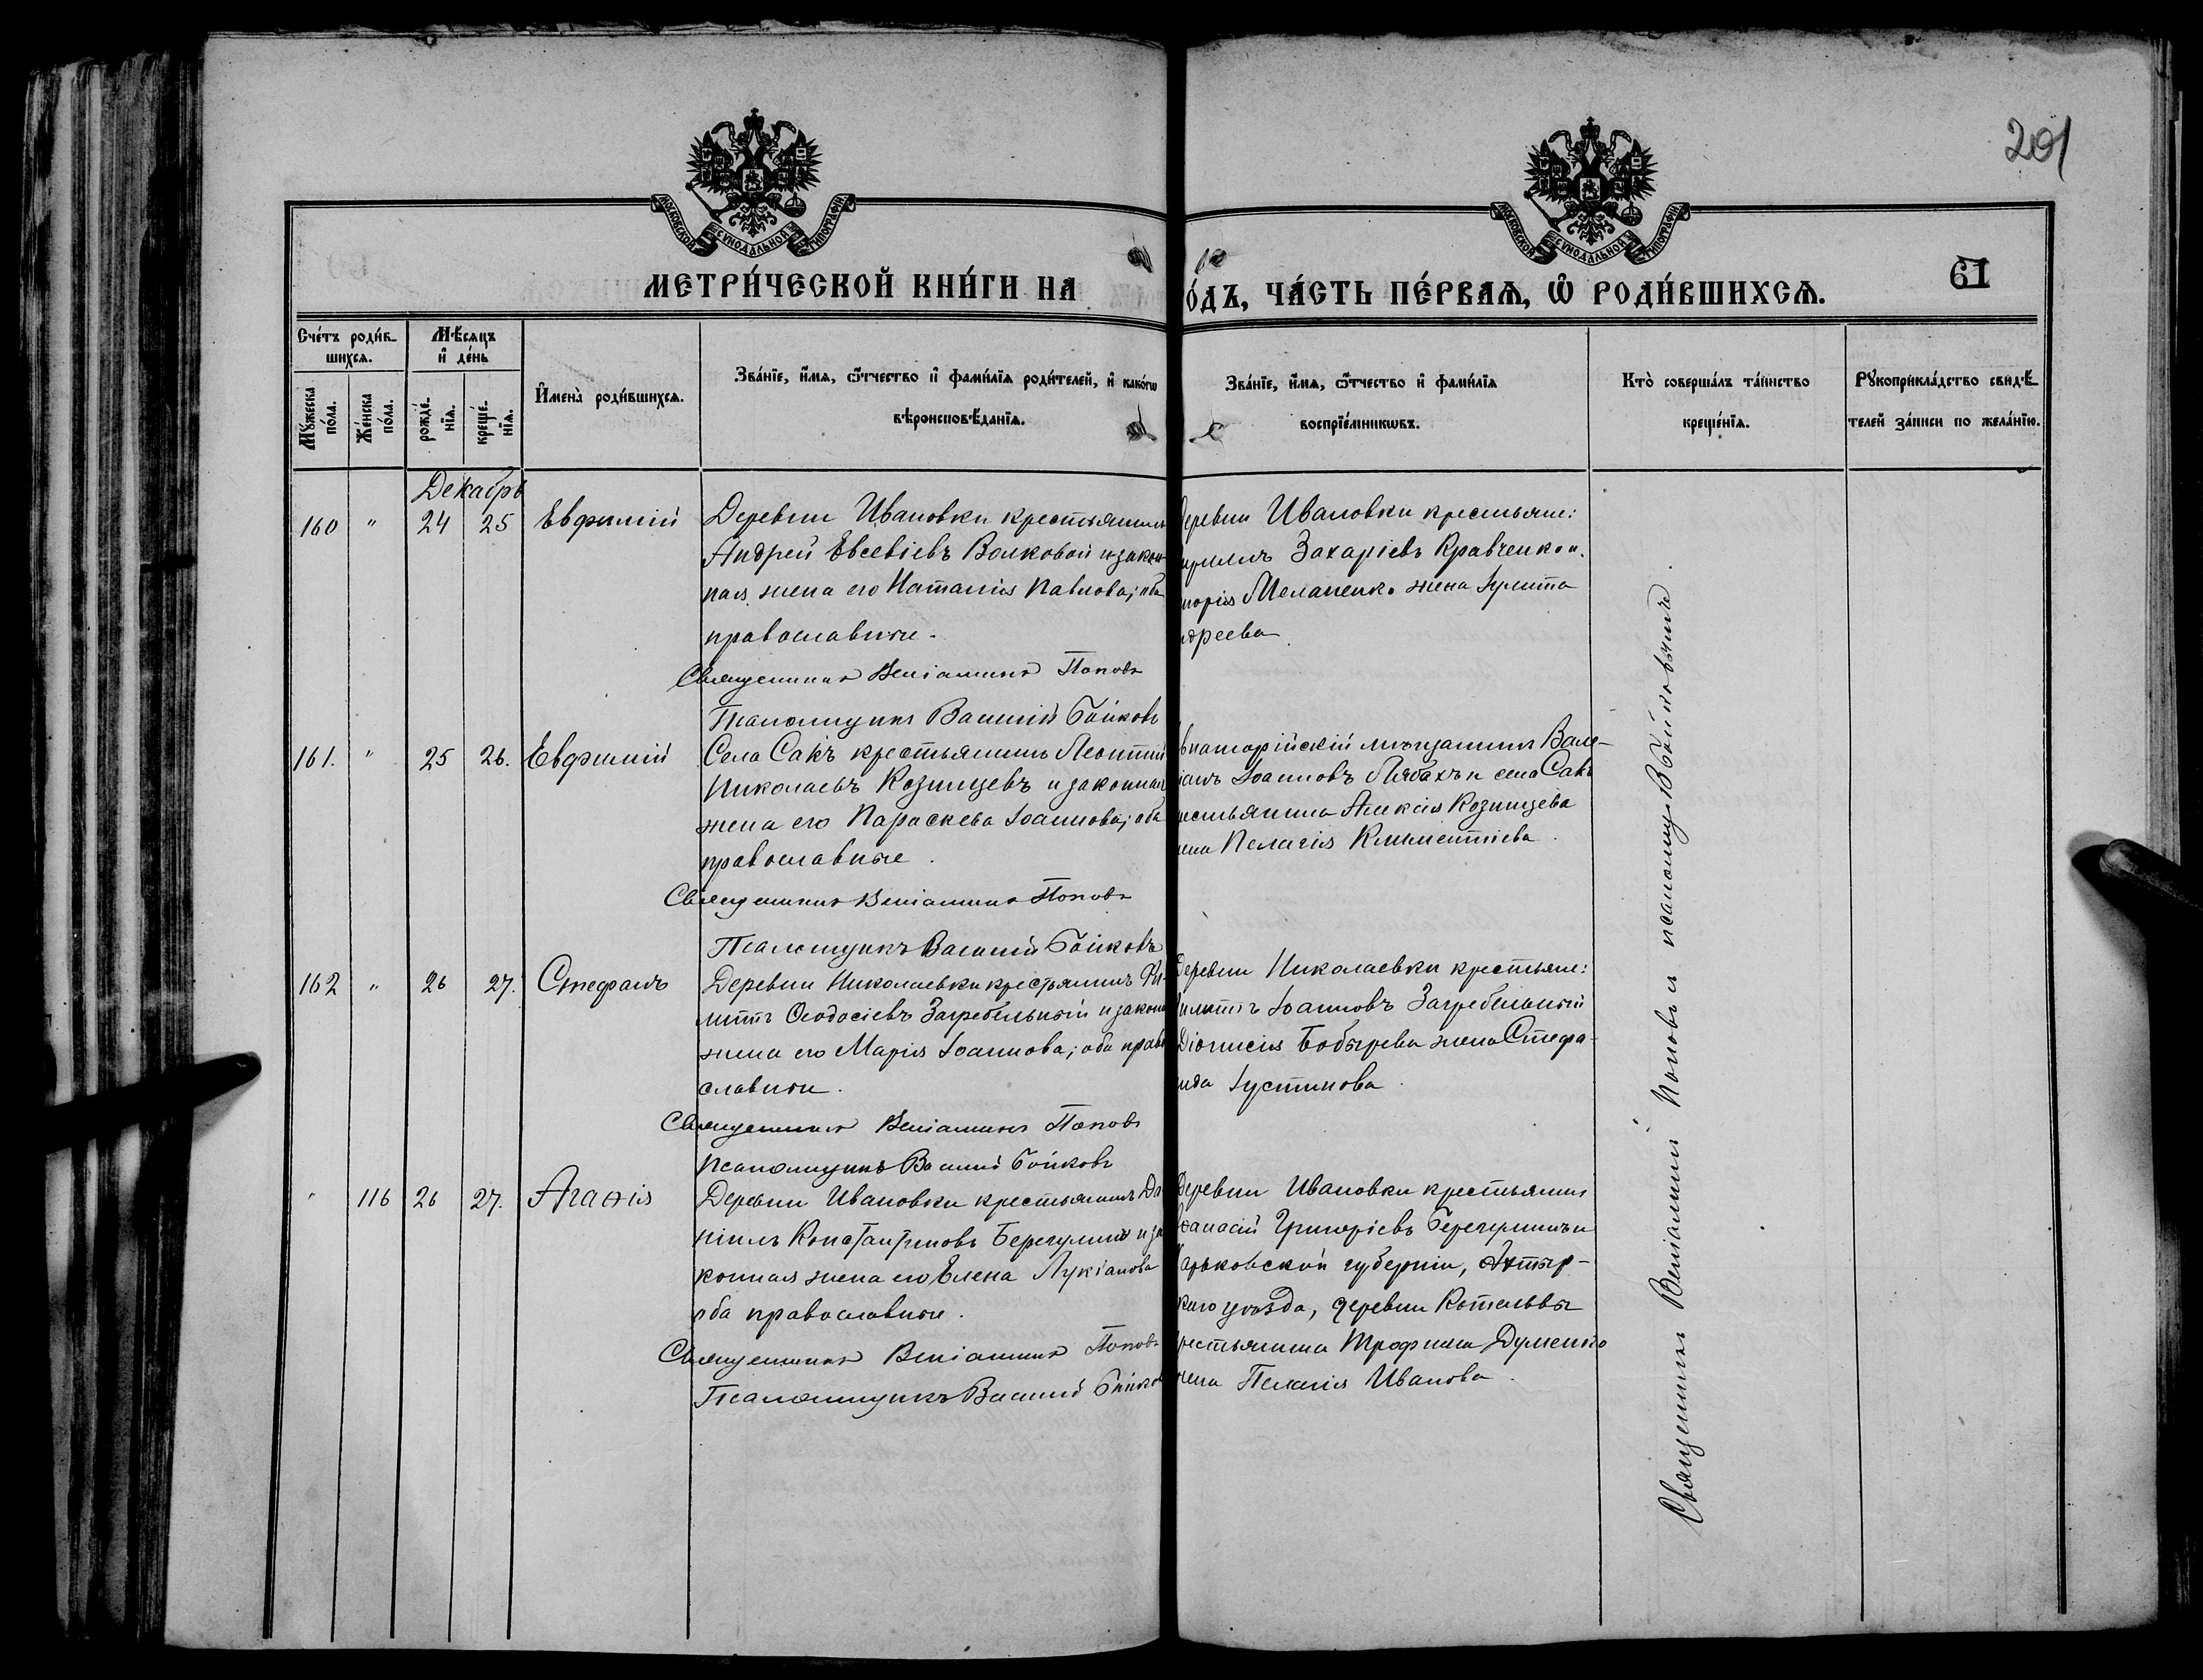 201
МОСКОВСКОЙ СѴНОДАЛЬНОЙ ТИПОГРАФІИ
МОСКОВСКОЙ СѴНОДАЛЬНОЙ ТИПОГРАФІИ
МЕТРИ́ЧЕСКОЙ КНИ́ГИ НА
О́ДЪ, ЧА́СТЬ ПЕ́РВАЯ, Ѡ҆ РОДИ́ВШИХСЯ.
61
Сче́тъ роди́в-
шихся.
Мꙋ́жеска по́ла.
Же́нска по́ла.
Мѣ́сяцъ
и҆ де́нь
рожде́-
нїя.
креще́-
нїя.
И҆мена̀ роди́вшихся.
Зва́нїе, и҆́мя, ѻ҆́тчество и҆ фами́лїя роди́телей, и҆ како́гѡ
вѣроисповѣ́данїя.
Зва́нїе, и҆́мя, ѻ҆́тчество и҆ фами́лїя
воспрїе́мникѡвъ.
Кто̀ соверша́лъ та́инство
креще́нїя.
Рꙋкоприкла́дство свидѣ́-
телей за́писи по жела́нїю.
Декабрь
160 " 24 25 Евфимій
Деревни Ивановки крестьянинъ
Андрей Евсевіевъ Волковой и закон-
ная жена его Наталія Павлова; оба
православные.
Священникъ Веніаминъ Поповъ
Псаломщикъ Василій Бойковъ
деревни Ивановки крестьяне:
Захаріевъ Кравченко и
Меланенко жена Іулита
дреева
161. " 25 26. Евфимій
Села Сакъ крестьянинъ Леонтий
Николаевъ Козинцевъ и законная
жена его Параскева Іоаннова; оба
православные.
Священникъ Веніаминъ Поповъ
Псаломщикъ Василій Бойковъ
впаторійскій мѣщанинъ Вале-
іанъ Іоанновъ Лябахъ и села Сакъ
рестьянина Алексія Козинцева
жена Пелагія Климентіева.
162 " 26 27. Стефанъ
Деревни Николаевки крестьянинъ Фи-
липпъ Ѳеодосіевъ Загребельный и законн
жена его Марія Іоаннова; оба право
славные.
Священникъ Веніаминъ Поповъ
Псаломщикъ Василій Бойковъ
Деревни Николаевки крестьяне:
Филиппъ Іоанновъ Загребельный
Діонисія Бобырева жена Стефа-
нида Іустинова.
" 116 26 27. Агаѳія
Деревни Ивановки крестьянинъ Да
ніилъ Константиновъ Берегулинъ и за
конная жена его Елена Лукіанова
оба православные.
Священникъ Веніаминъ Поповъ
Псаломщикъ Василій Бойков
Деревни Ивановки крестьянинъ
ѳанасій Григоріевъ и
Харьковской губерніи, Ахтыр-
каго уѣзда, деревни Котельвы
крестьянина Трофима Думенко
жена Пелагія Иванова.
Священникъ Веніаминъ Поповъ и псаломщ. В. Бойковымъ.